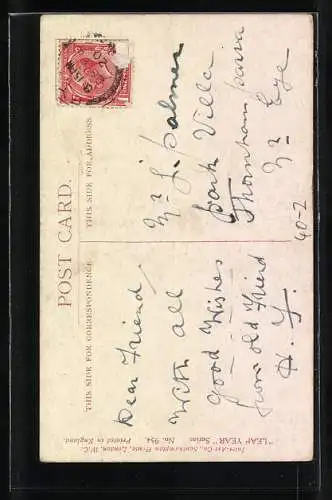 POST CARD.
THIS SIDE FOR CORRESPONDENCE.
THIS SIDE FOR ADDRESS.
Dear Friend,
With all
Good Wishes
from old Friend
H. Y.
Mr J. Palmer
Park Villa
Thornham Parva
Nr Eye
40-2
Inter-Art Co., Southampton House, London, W.C.
"LEAP YEAR" Series No. 954. Printed in England.